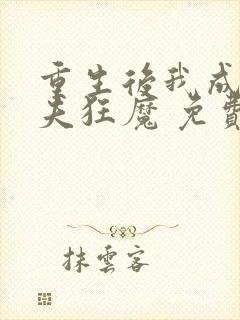 重生後我成
夫狂魔 免費
抹雲客